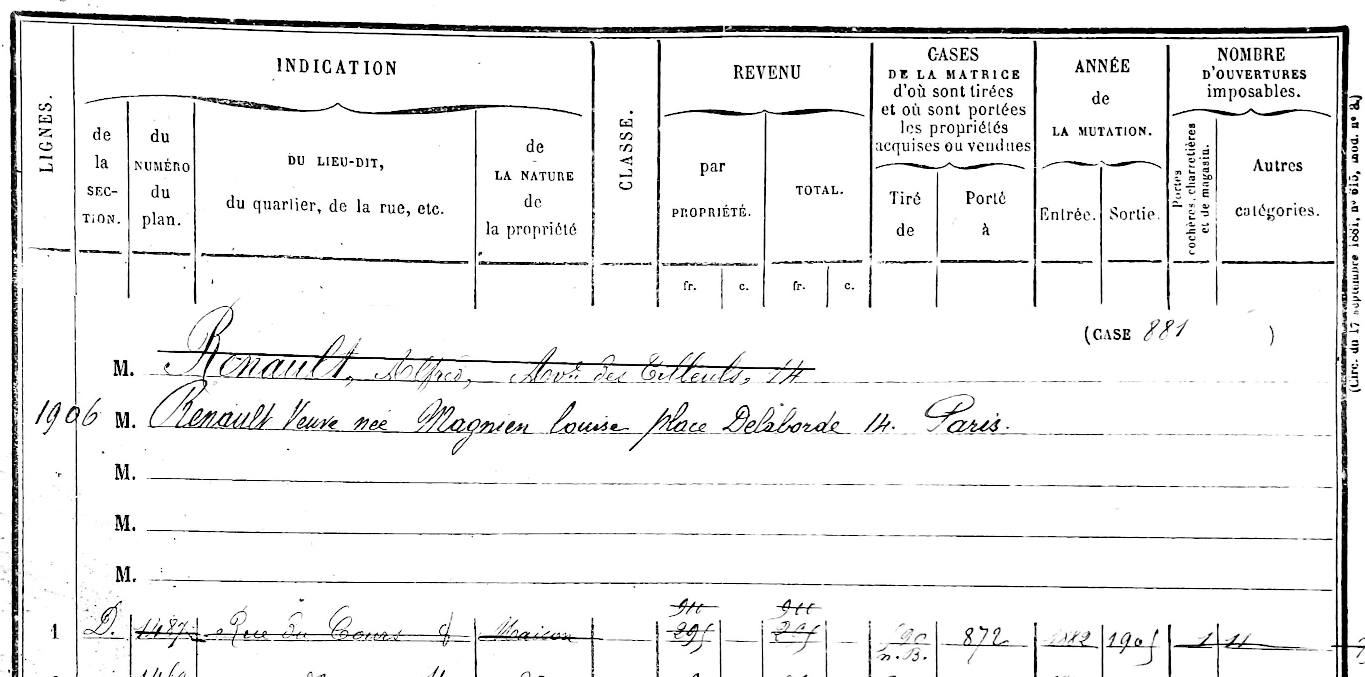 LIGNES.
INDICATION
de la SECTION.
du NUMÉRO du plan.
DU LIEU-DIT,
du quartier, de la rue, etc.
de LA NATURE de la propriété
CLASSE.
REVENU
par PROPRIÉTÉ.
TOTAL.
fr. c. fr. c.
CASES
DE LA MATRICE
d'où sont tirées
et où sont portées
les propriétés
acquises ou vendues
Tiré de
Porté à
ANNÉE
de
LA MUTATION.
Entrée. Sortie.
NOMBRE
D'OUVERTURES
imposables.
Portes cochères, charretières et de magasin.
Autres catégories.
(Circ. du 17 septembre 1881, n° 615, mod. n° 2.)
(CASE 881 )
M. Renault, Alfred, Av. des Tilleuls, 14
1906 M. Renault Veuve née Magnien Louise place Delaborde 14. Paris.
M.
M.
M.
1 D. 1487 Rue du Cours 8 Maison 295 872 1882 1905 1 11